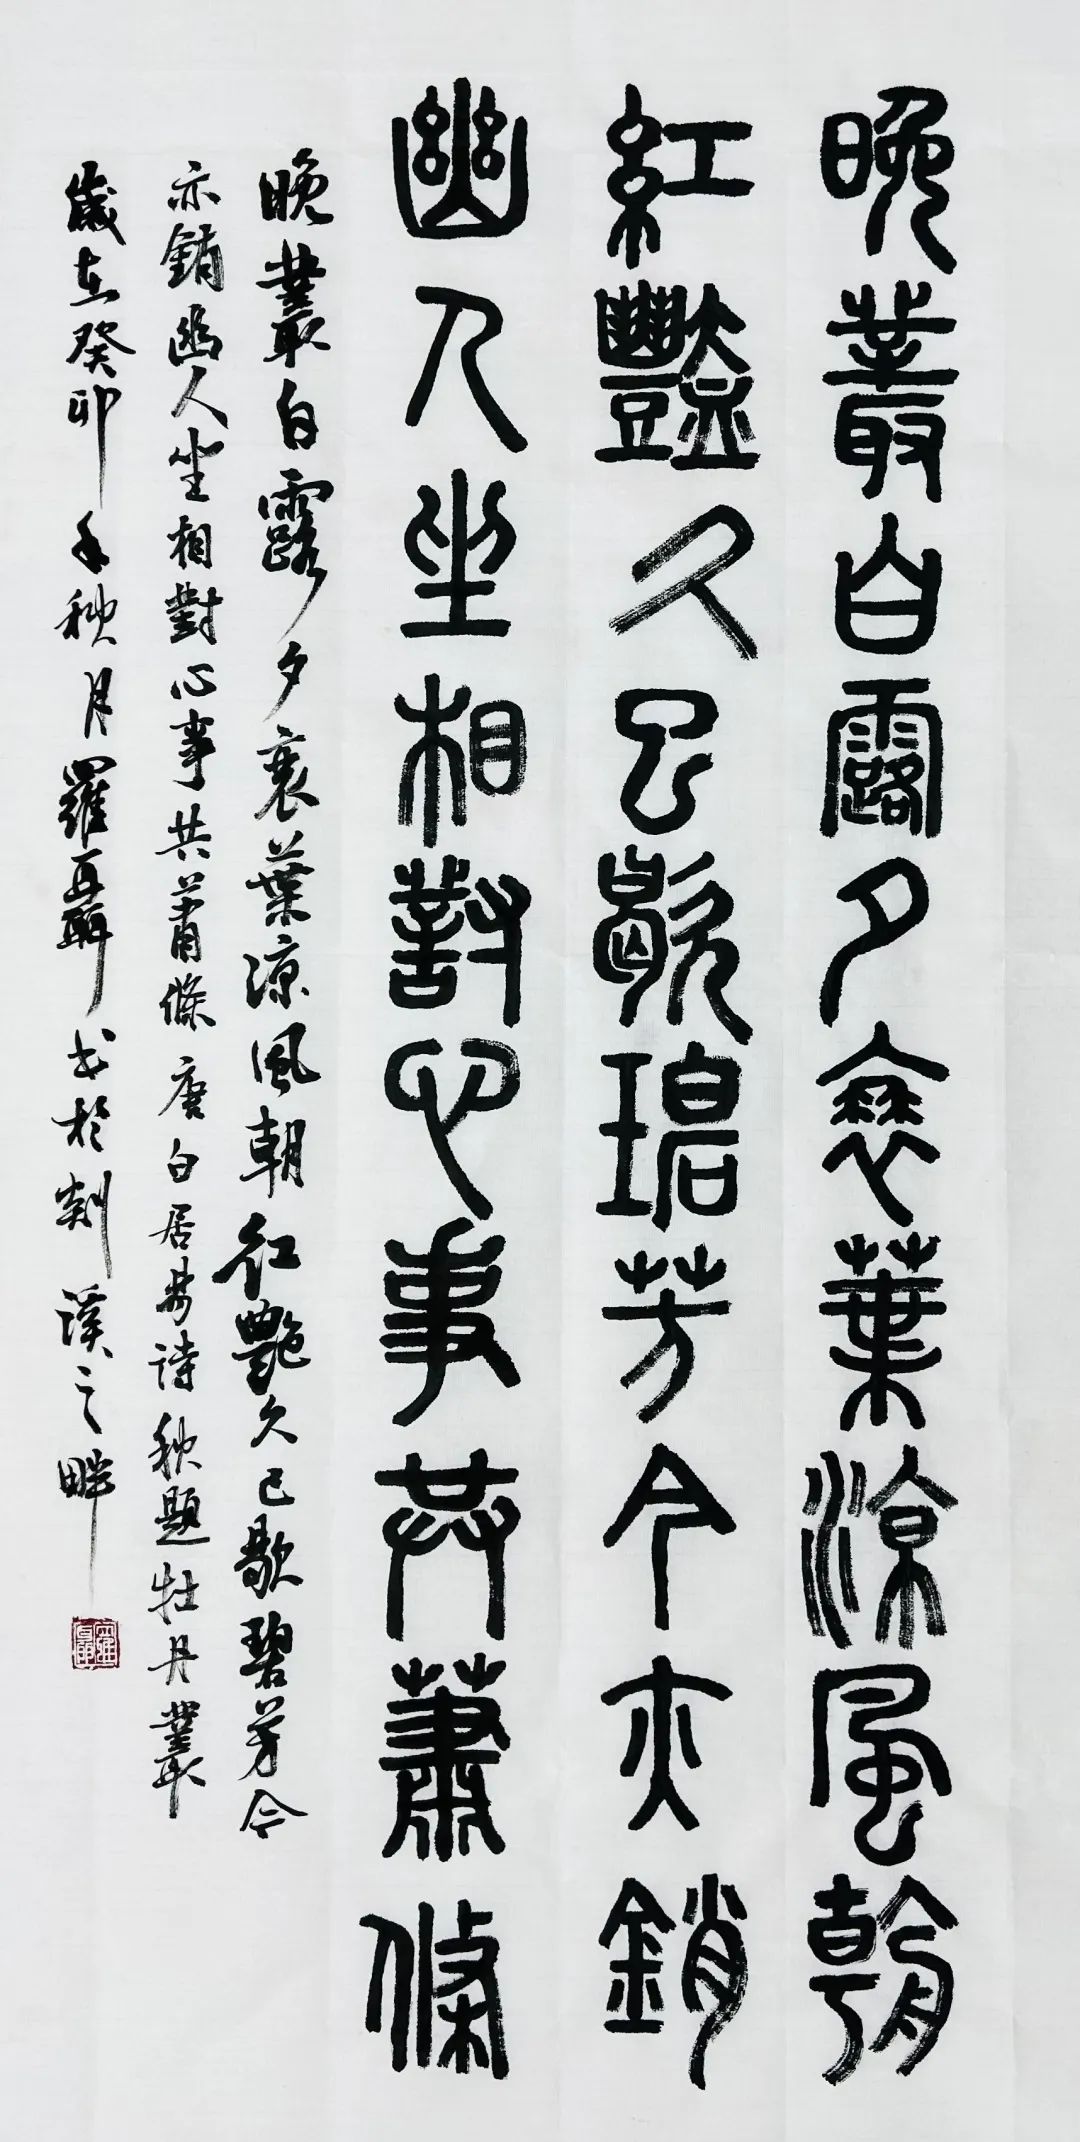 晚叢白露夕衰葉涼風朝
紅豔久已歇碧芳今亦銷
幽人坐相對心事共蕭條
晚叢白露夕衰葉涼風朝紅艷久已歇碧芳今
亦銷幽人坐相對心事共蕭條唐白居易詩秋題牡丹叢
歲在癸卯年秋月羅再聯书於剡溪之畔